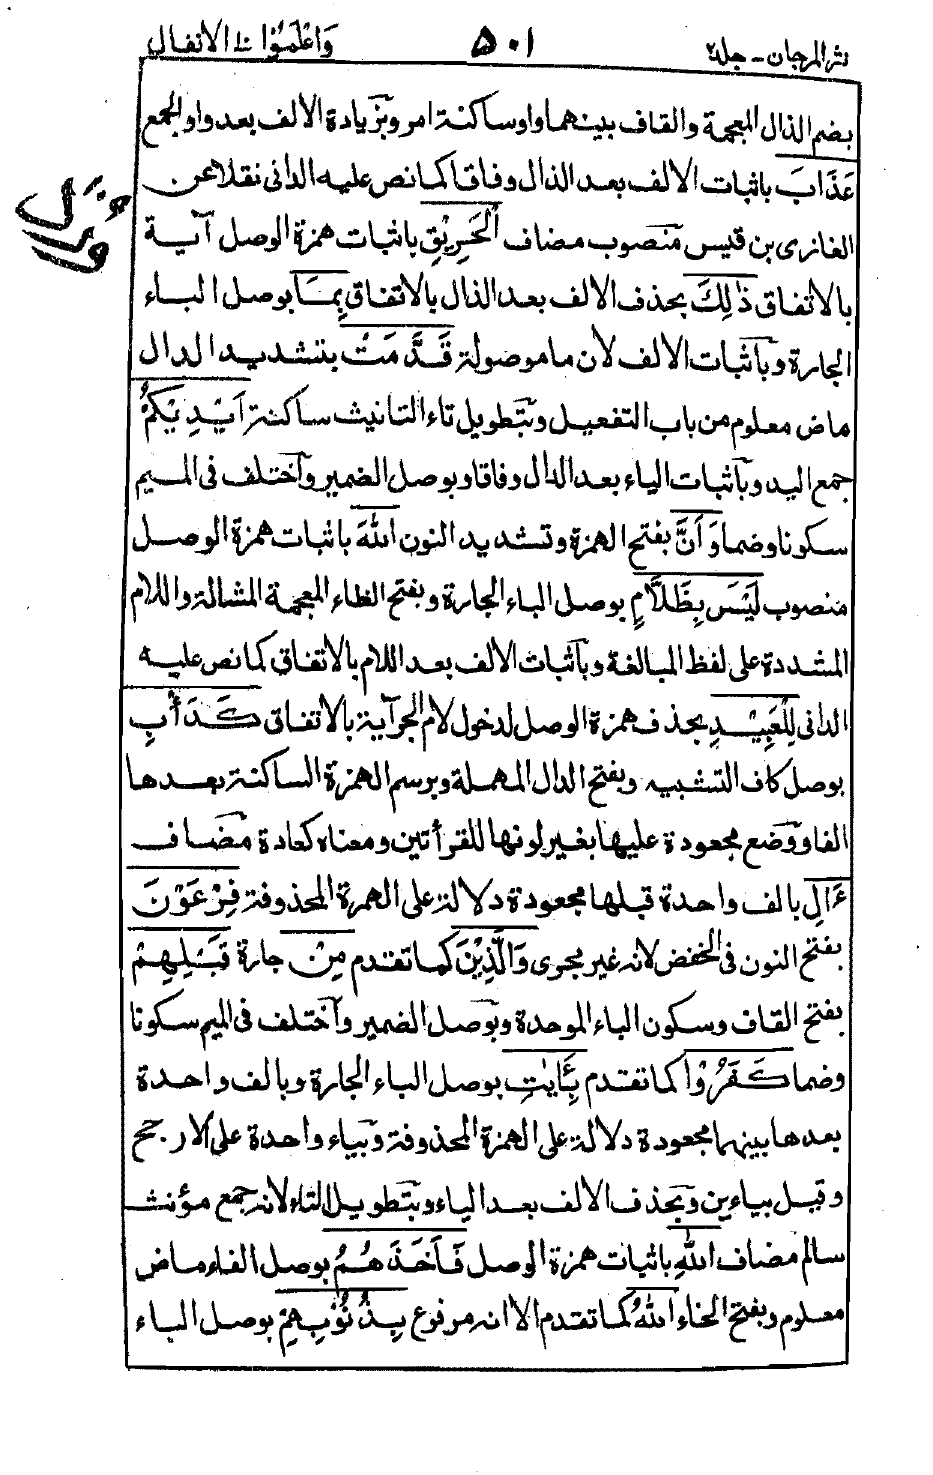 نثر المرجان - جلد٢ ٥٠١ وَاعْلَمُوْا ١٠ الانفال
بضم الذال المعجمة والقاف بينهما واو ساكنة امر وبزيادة الالف بعد واو الجمع
عَذَابَ باثبات الالف بعد الذال وفاقا كما نص عليه الدانى نقلا عن
الغازى بن قيس منصوب مضاف اَلْحَرِيْقِ باثبات همزة الوصل آية
بالاتفاق ذٰلِكَ بحذف الالف بعد الذال بالاتفاق بِمَا بوصل الباء
الجارة وبآثبات الالف لأن ما موصولة قَدَّمَتْ بتشديد الدال
ماض معلوم من باب التفعيل وبتطويل تاء التانيث ساكنة اَيْدِيْكُمْ
جمع اليد وبآثبات الياء بعد الدال وفاقا وبوصل الضمير وآختلف فى الميم
سكونا وضما وَاَنَّ بفتح الهمزة وتشديد النون اللّٰهَ باثبات همزة الوصل
منصوب لَيْسَ بِظَلَّامٍ بوصل الباء الجارة وبفتح الظاء المعجمة المشالة واللام
المشددة على لفظ المبالغة وبآثبات الالف بعد اللام بالاتفاق كما نص عليه
الدانى لِلْعَبِيْدِ بحذف همزة الوصل لدخول لام الجر آية بالاتفاق كَدَأْبِ
بوصل كاف التشبيه وبفتح الدال المهملة وبرسم الهمزة الساكنة بعدها
الفا ووضع مجعودة عليها بغير لونها للقرأتين ومعناه كعادة مضاف
ءَالِ بالف واحدة قبلها مجعودة دلالة على الهمزة المحذوفة فِرْعَوْنَ
بفتح النون فى الخفض لانه غير مجرى وَالَّذِيْنَ كما تقدم مِنْ جارة قَبْلِهِمْ
بفتح القاف وسكون الباء الموحدة وبوصل الضمير وآختلف فى الميم سكونا
وضما كَفَرُوْا كما تقدم بِئَايٰتِ بوصل الباء الجارة وبالف واحدة
بعدها بينهما مجعودة دلالة على الهمزة المحذوفة وبياء واحدة على الارجح
وقيل بياءين وبحذف الالف بعد الياء وبتطويل التاء لانه جمع مؤنث
سالم مضاف اللّٰهِ باثبات همزة الوصل فَاَخَذَهُمُ بوصل الفاء ماض
معلوم وبفتح الخاء اللّٰهُ كما تقدم الا انه مرفوع بِذُنُوْبِهِمْ بوصل الباء